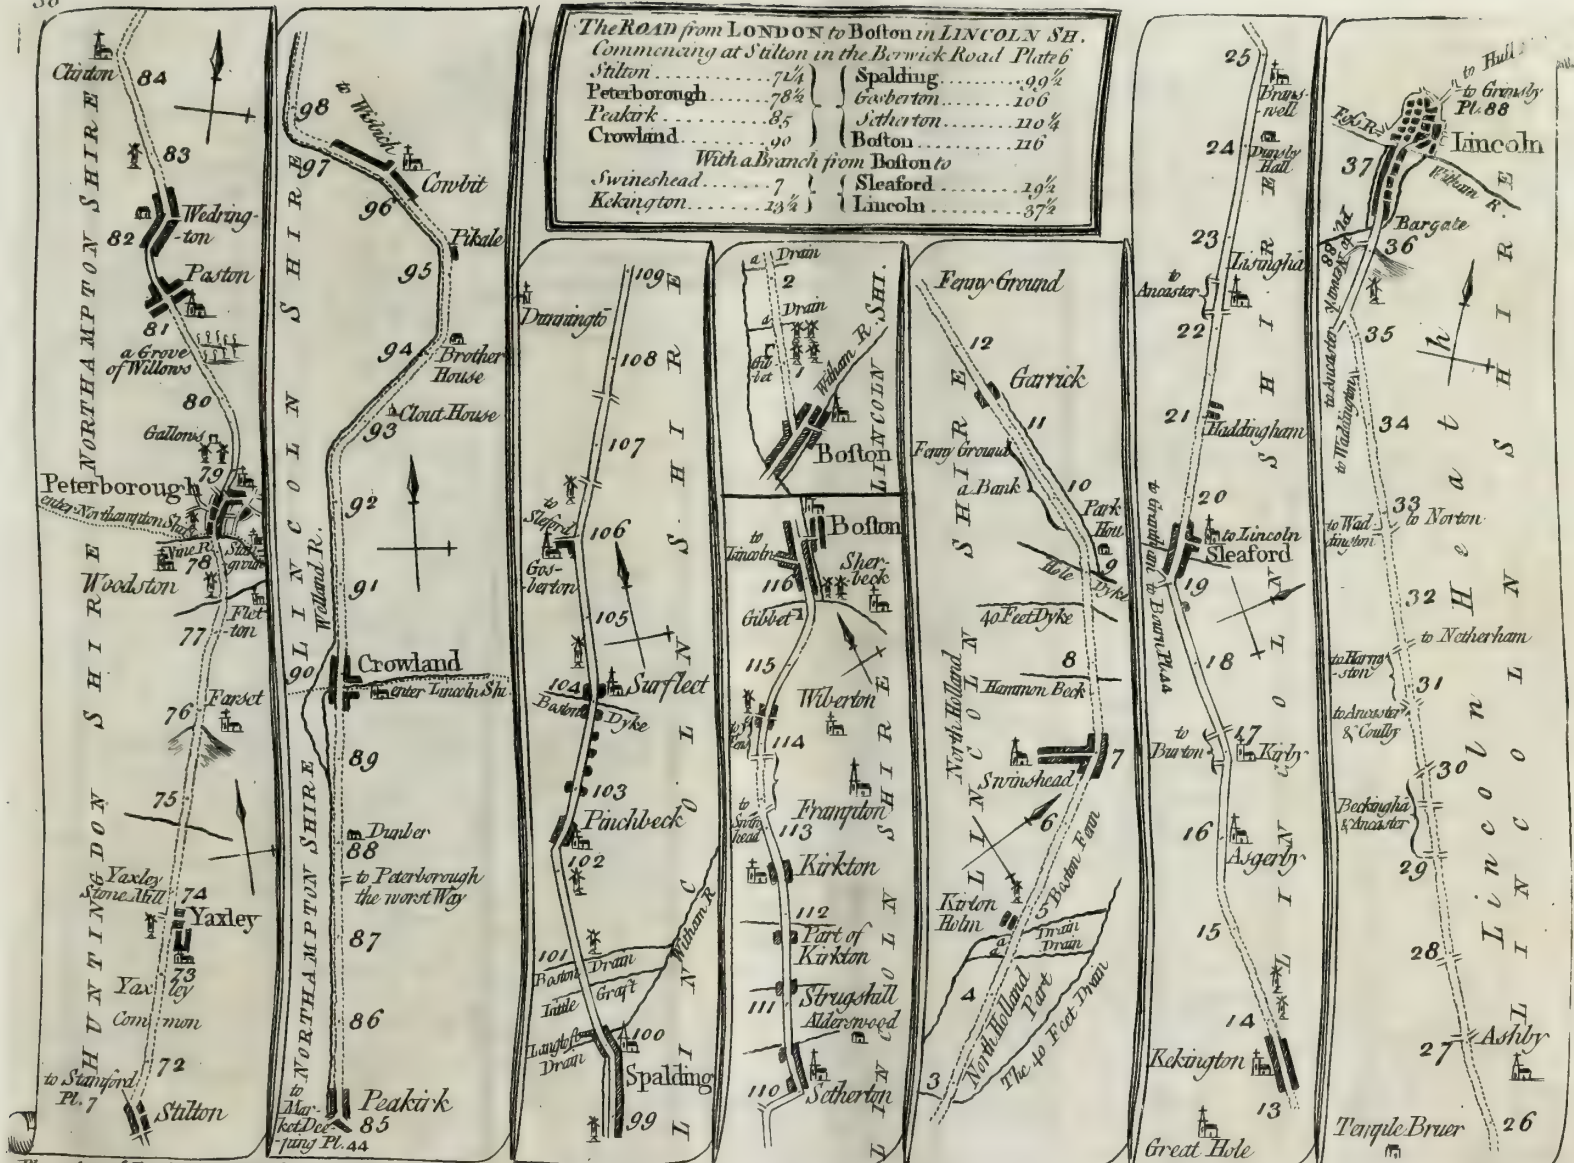 The ROAD from LONDON to Boston in LINCOLN SH.
Commencing at Stilton in the Berwick Road Plate 6
Stilton ........... 71¼
Peterborough ....... 78½
Peakirk ............ 85
Crowland .......... 90
Spalding ........ 99½
Gosberton ....... 106
Setherton ....... 110¼
Boston .......... 116
With a Branch from Boston to
Swineshead ....... 7
Kekington ........ 13½
Sleaford ......... 19½
Lincoln .......... 37½
Clinton
84
83
Wedring-
-ton
82
Paston
81
a Grove
of Willows
80
Gallows
79
Peterborough
enter Northampton Shi
Nine R.
Stan-
ground
78
Woodston
Flet-
-ton
77
Farset
76
75
Yaxley
Stone Mill
74
Yaxley
73
Yaxley
Common
72
to Stamford
Pl. 7
Stilton
NORTHAMPTON SHIRE
HUNTINGDON SHIRE
98
to Wisbich
97
Cowbit
96
Pikale
95
94
Brother
House
Clout House
93
92
Welland R.
91
90
Crowland
enter Lincoln Shi.
89
Dunber
88
to Peterborough
the worst Way
87
86
to
Mar-
ket Dee-
-ping Pl. 44
Peakirk
85
LINCOLN SHIRE
NORTHAMPTON SHIRE
109
Dunningto
108
107
to
Sleford
106
Gos-
berton
105
104
Surfleet
Boston
Dyke
103
Pinchbeck
102
Witham R
101
Boston Drain
Little Graft
Langtoft
Drain
100
Spalding
99
LINCOLN SHIRE
a
Drain
2
a
Drain
Gib-
bet
1
Witham R.
Boston
LINCOLN SHI.
Boston
to
Lincoln
Sher-
beck
116
Gibbet
115
Wiberton
114
Frampton
to
Swin
head
113
Kirkton
112
Part of
Kirkton
Strugshill
111
Alderswood
110
Setherton
LINCOLN SHIRE
Fenny Ground
12
Garrick
11
Fenny Ground
a Bank
10
Park
Hou
9
Hole
Dyke
40 Feet Dyke
8
Hammon Beck
7
Swinshead
6
Boston Fenn
5
Kirton
Holm
a
Drain
a
Drain
4
North Holland
Part
The 40 Feet Drain
3
North Holland
LINCOLN SHIRE
25
Brans-
-well
24
Dunsby
Hall
23
Lisingha
to
Ancaster
22
21
Haddingham
20
to Lincoln
Sleaford
to Grantham
to Bourn Pl. 44
19
18
to
Burton
17
Kirby
16
Asgerby
15
14
Kekington
13
Great Hole
LINCOLN SHIRE
to Hull
to Grimsby
Pl. 88
Lincoln
Fos R.
37
Witham R.
Bargate
36
to Newark Pl. 88
35
to Ancaster
to Waddington
34
33
to Wad
dington
to Norton
32
to Netherham
to Harm
-ston
31
to Ancaster
& Coulby
30
Beckingha
& Ancaster
29
28
Ashby
27
Temple Bruer
26
Lincoln Heath
LINCOLN SHIRE